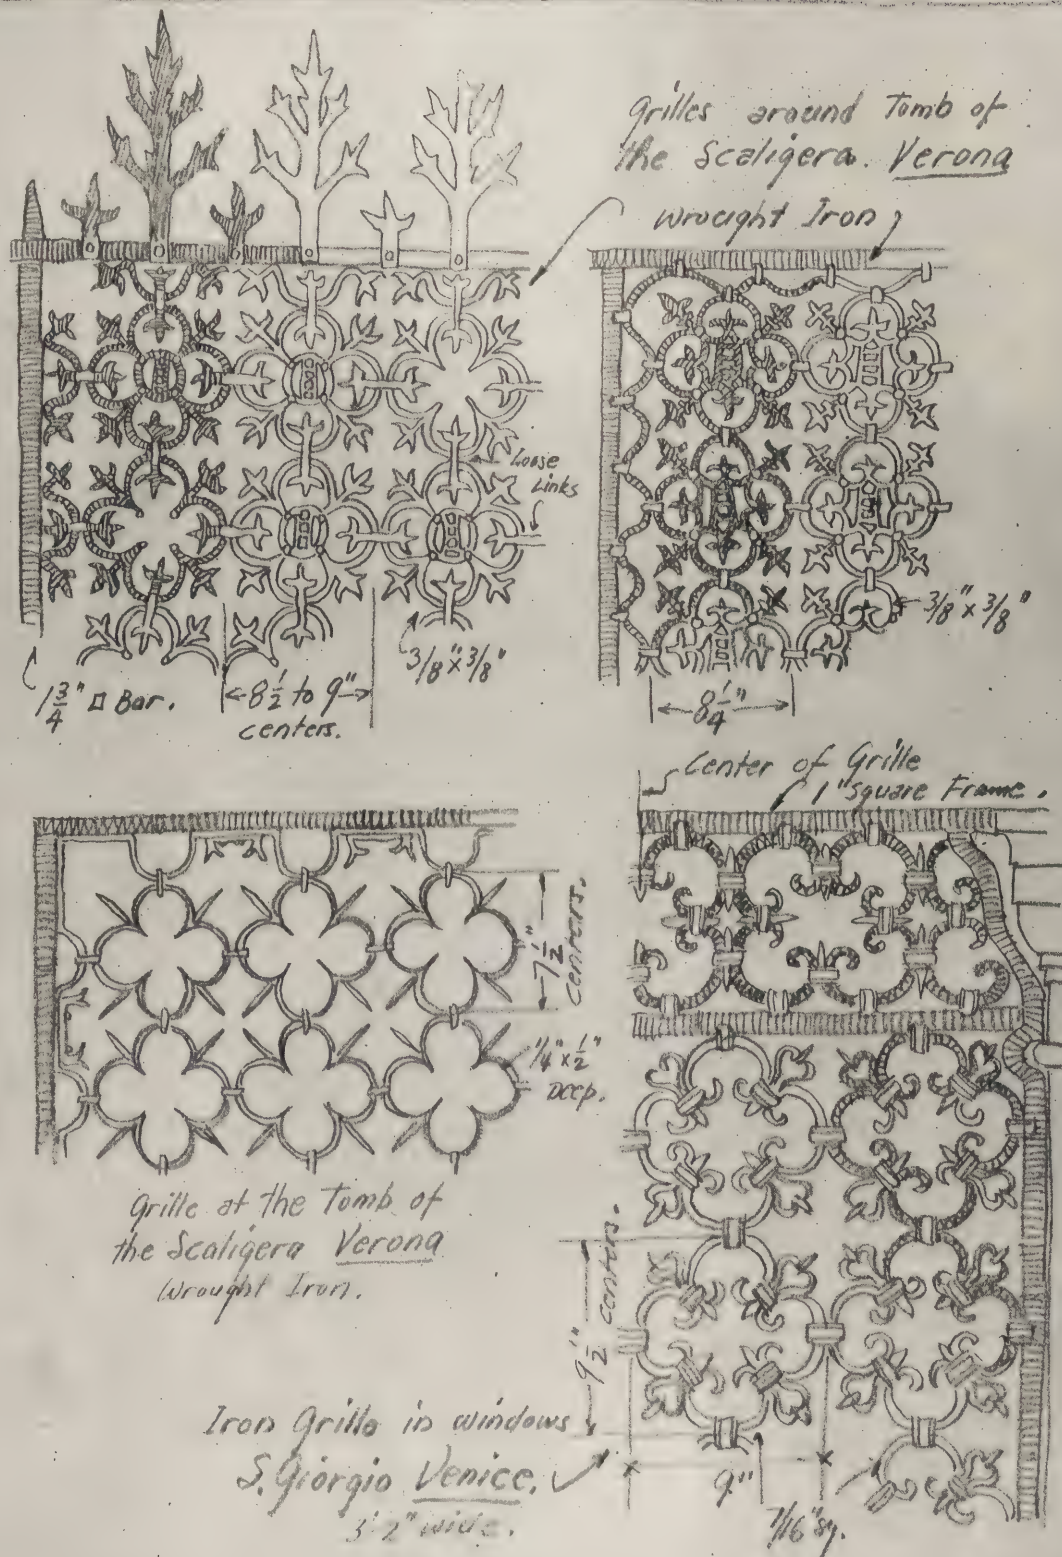 Grilles around Tomb of
the Scaligera. Verona
Wrought Iron
Loose
Links
3/8" x 3/8"
1 3/4" □ Bar.
8 1/2 to 9"
centers.
3/8" x 3/8"
8 1/4"
Center of Grille
1" square Frame.
7 1/2"
centers.
1/4" x 1/2"
Deep.
Grille at the Tomb of
the Scaligera Verona
Wrought Iron.
9 1/2" centers.
Iron Grille in windows
S. Giorgio Venice.
3'-2" wide.
9"
7/16" sq.